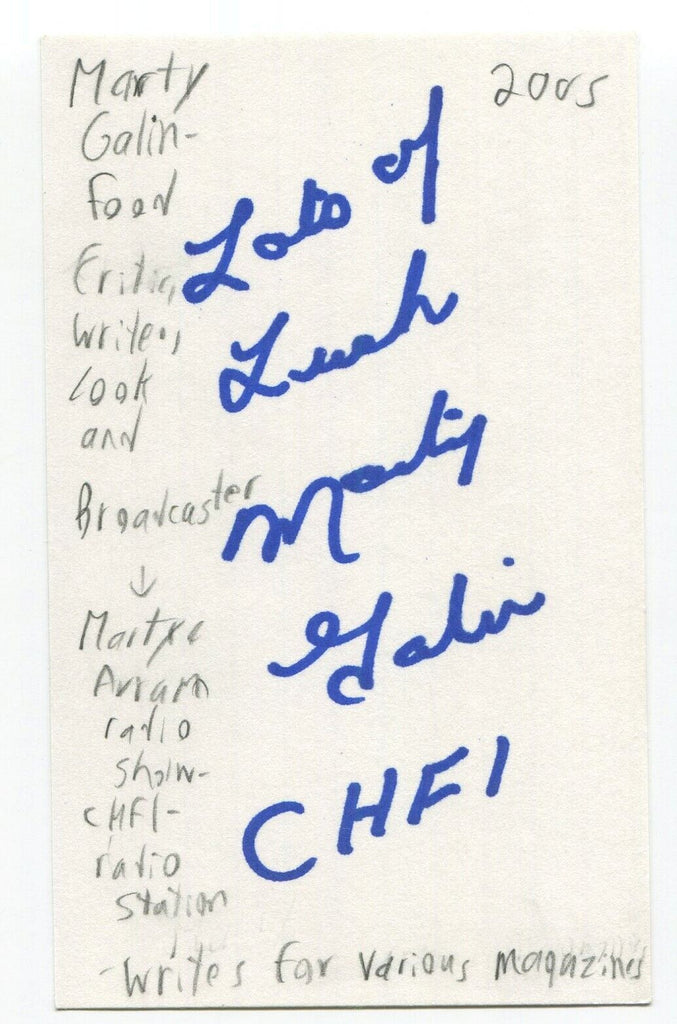 Marty
Galin-
Food
Critic,
Writer,
Cook
and
Broadcaster
↓
Marty &
Avram
radio
show-
CHFI-
radio
station
-Writes for various magazines
2005
Lots of
Luck
Marty
Galin
CHFI